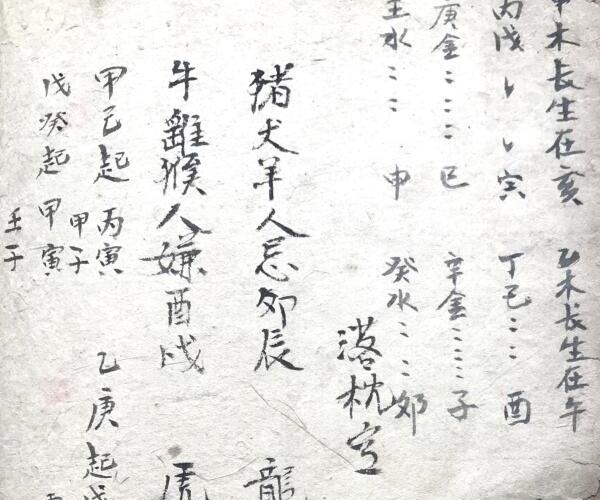 甲木长生在亥 乙木长生在午
丙戊〻〻寅 丁己〻〻酉
庚金〻〻〻巳 辛金〻〻〻子
壬水〻〻申 癸水〻〻卯
落枕穴
猪犬羊人忌卯辰 龍
牛離猴人嫌酉戌 虎
甲己起丙寅 乙庚起戊
甲子
戊癸起甲寅
壬子